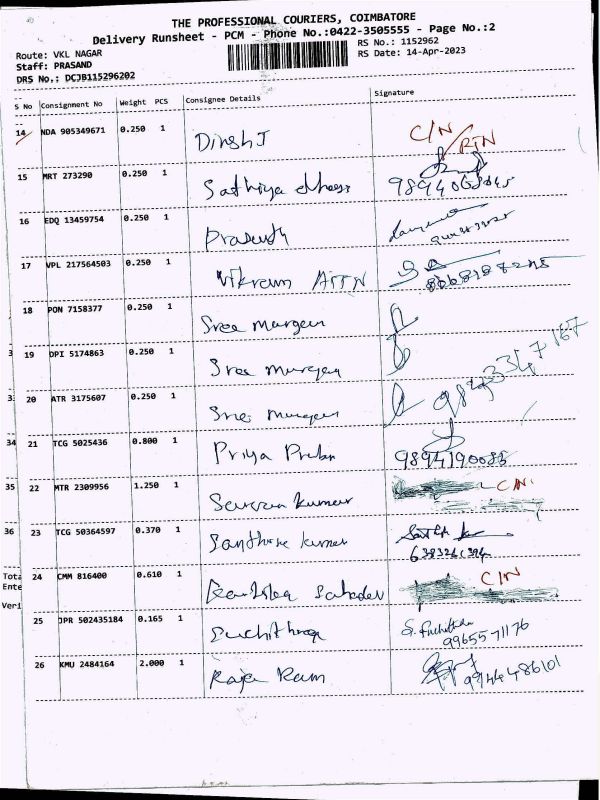 THE PROFESSIONAL COURIERS, COIMBATORE
Delivery Runsheet - PCM - Phone No.:0422-3505555 - Page No.:2
Route: VKL NAGAR
RS No.: 1152962
Staff: PRASAND
RS Date: 14-Apr-2023
DRS No.: DCJB115296202
S No Consignment No Weight PCS Consignee Details Signature
14 NDA 905349671 0.250 1 Dinesh J C/N/RTN
15 MRT 273290 0.250 1 Sathiya
16 EDQ 13459754 0.250 1 Prasanth
17 VPL 217564503 0.250 1 Vikram
18 PON 7158377 0.250 1 Sree Murgan
3 19 DPI 5174863 0.250 1 Sree Murgan
3 20 ATR 3175607 0.250 1 Sree Murgan
34 21 TCG 5025436 0.800 1 Priya 9894190085
35 22 MTR 2309956 1.250 1 Kumar C/N
36 23 TCG 50364597 0.370 1 Kumar
Tota 24 CMM 816400 0.610 1 Sahadev C/N
Ente
Veri
25 JPR 502435184 0.165 1 9965571176
26 KMU 2484164 2.000 1 Raja Ram 9944486101